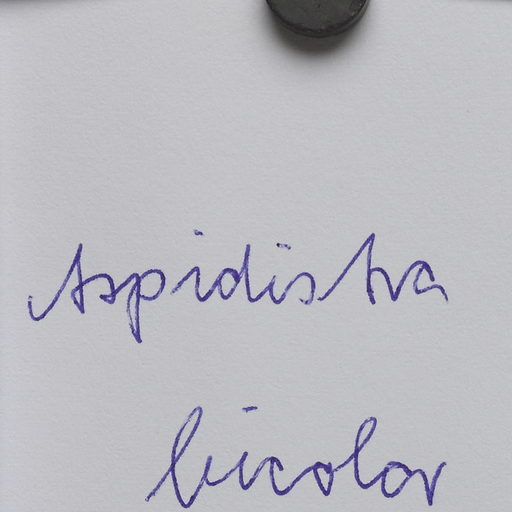 Aspidistra
bicolor